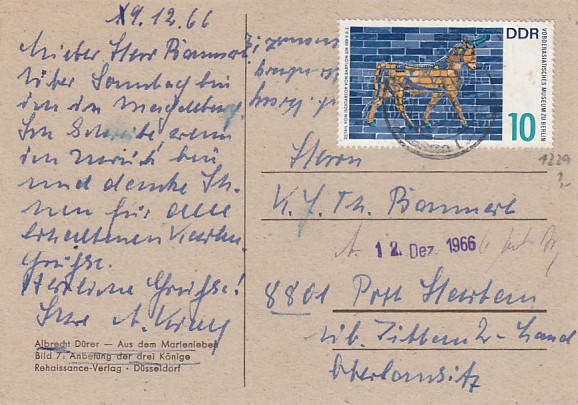 9.12.66
Lieber Herr Baumert
über Sonntag bin
ich in Magdeburg
Ich schreibe wenn
ich zurück bin
und danke Ih-
nen für alle
erhaltenen Karten
Grüsse.
Herzliche Grüsse!
Ihre A.
Albrecht Dürer — Aus dem Marienleben
Bild 7: Anbetung der drei Könige
Rehaissance-Verlag · Düsseldorf
DDR
10
VORDERASIATISCHES MUSEUM ZU BERLIN
DETAIL VOM ISCHTARTOR VON BABYLON UM 580 V.U.Z.
1229
Herrn
K. J. Th. Baumert
12. Dez. 1966
8801 Post
üb. Zittau 2 - Land
Oberlausitz